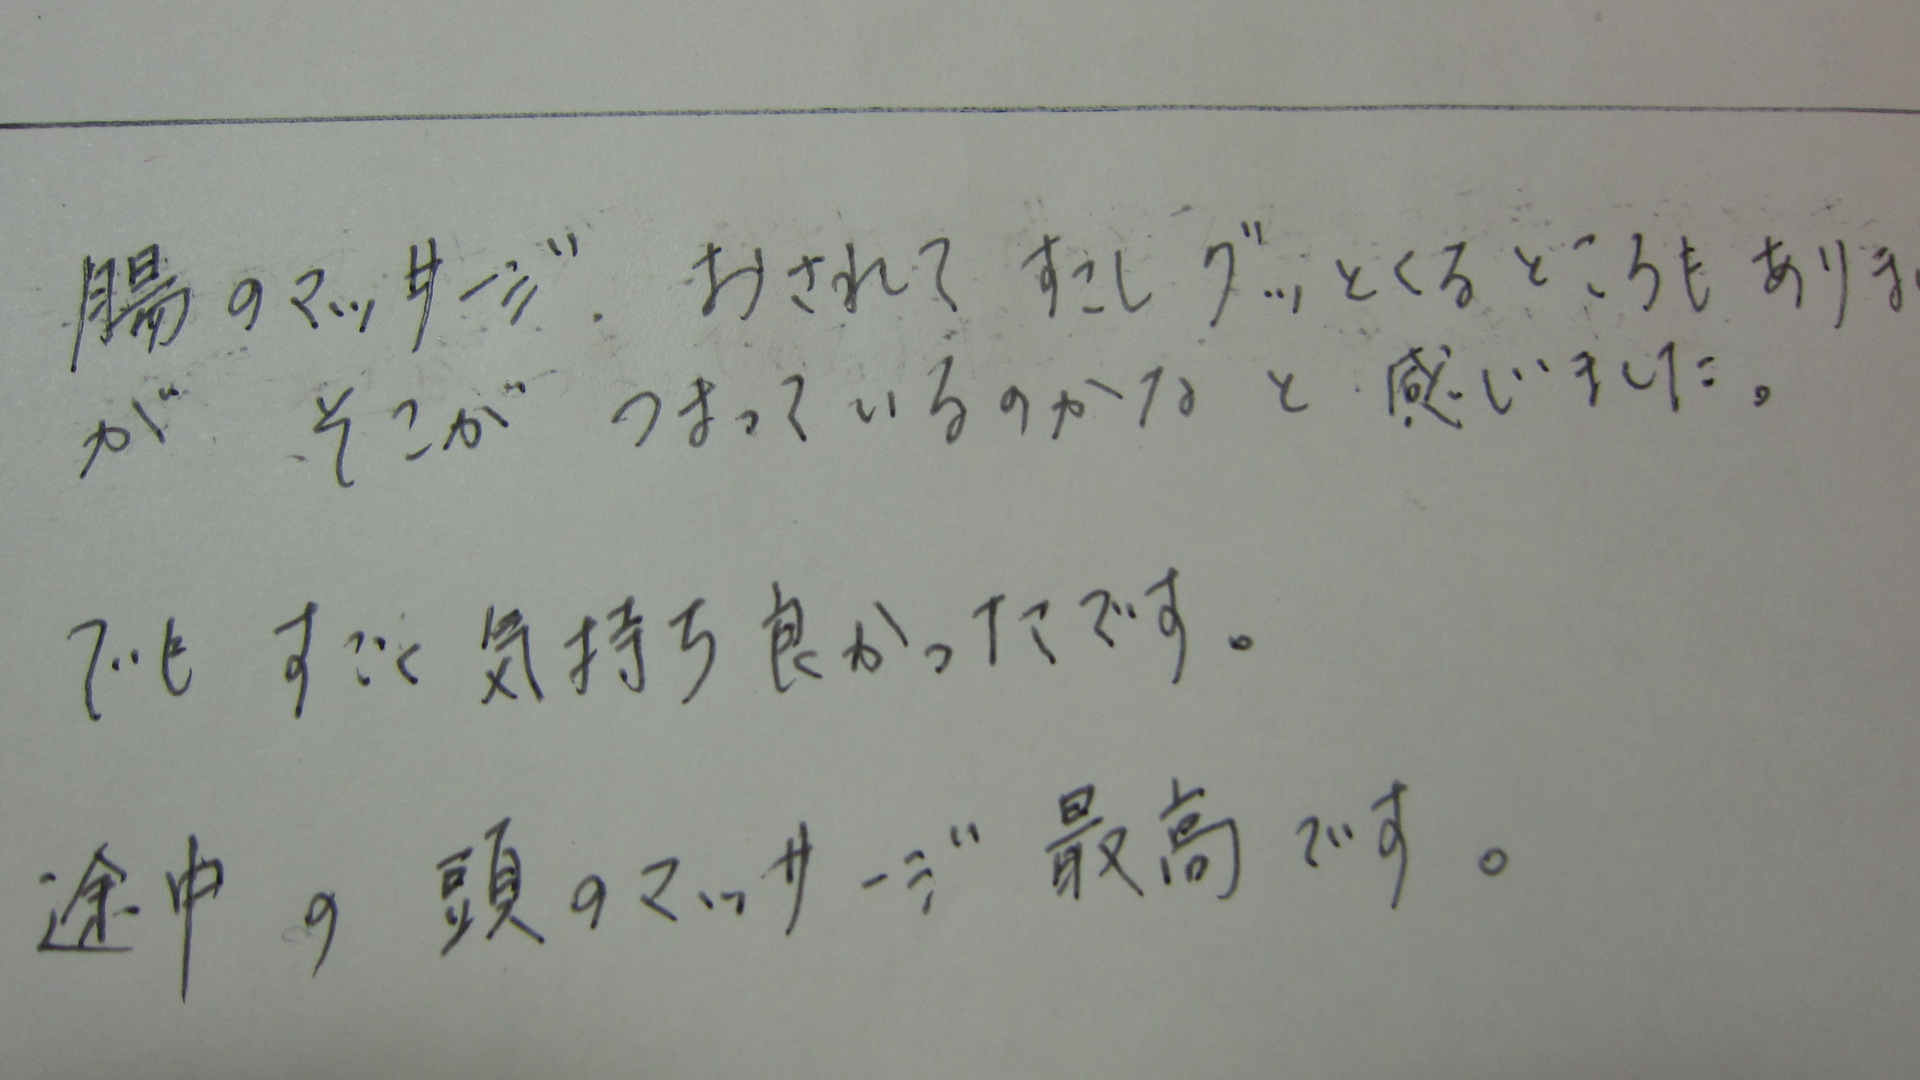 腸のマッサージ. おされて すこし グッとくるところも ありま
が そこが つまっているのかな と 感じました。
でも すごく 気持ち良かったです。
途中 の 頭のマッサージ 最高です。